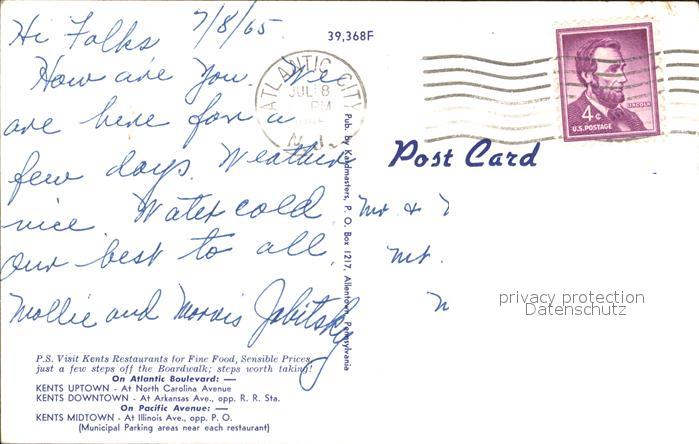 Hi Folks 7/8/65
How are you. We
are here for a
few days. Weather
nice. Water cold
Our best to all.
Mollie and Morris
P.S. Visit Kents Restaurants for Fine Food, Sensible Prices,
just a few steps off the Boardwalk; steps worth taking!
On Atlantic Boulevard: —
KENTS UPTOWN - At North Carolina Avenue
KENTS DOWNTOWN - At Arkansas Ave., opp. R. R. Sta.
On Pacific Avenue: —
KENTS MIDTOWN - At Illinois Ave., opp. P. O.
(Municipal Parking areas near each restaurant)
39,368F
ATLANTIC CITY
JUL 8
PM
N.J.
Pub. by Kardmasters, P. O. Box 1217, Allentown, Pennsylvania
LINCOLN
4¢
U.S. POSTAGE
Post Card
Mr &
Mt.
privacy protection
Datenschutz